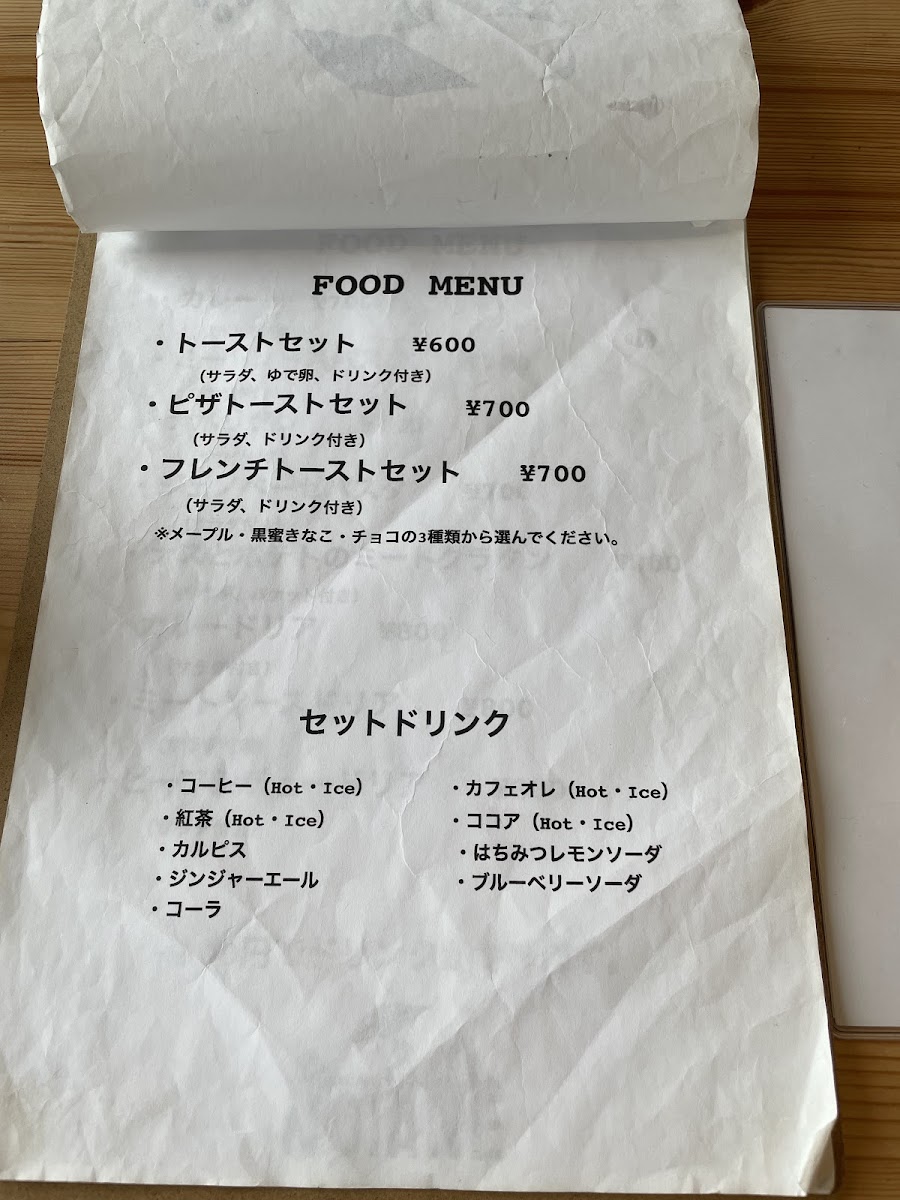 FOOD MENU
・トーストセット ¥600
（サラダ、ゆで卵、ドリンク付き）
・ピザトーストセット ¥700
（サラダ、ドリンク付き）
・フレンチトーストセット ¥700
（サラダ、ドリンク付き）
※メープル・黒蜜きなこ・チョコの3種類から選んでください。
セットドリンク
・コーヒー（Hot・Ice） ・カフェオレ（Hot・Ice）
・紅茶（Hot・Ice） ・ココア（Hot・Ice）
・カルピス ・はちみつレモンソーダ
・ジンジャーエール ・ブルーベリーソーダ
・コーラ